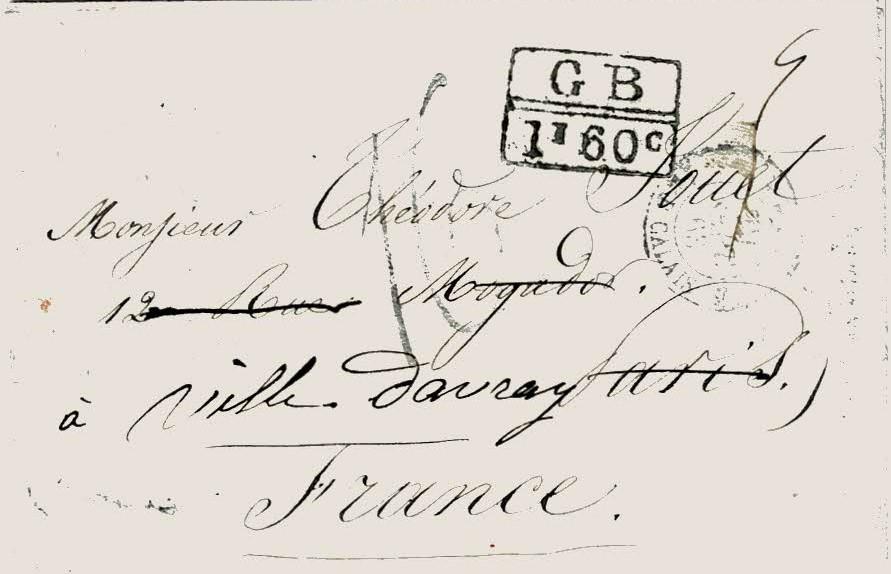 G B
1F 60c
Monsieur Théodore
12 Rue Mogador.
CALAIS
à Ville d'avray Paris.
France.